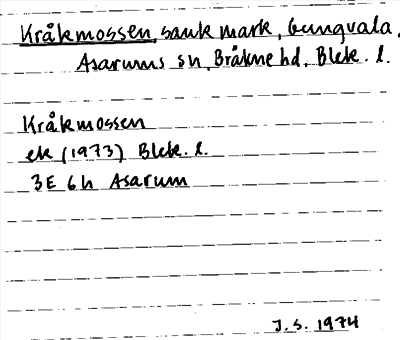 Kråkmossen, sank mark, Gungvala,
Asarums sn, Bräkne hd, Blek. l.
Kråkmossen
ek (1973) Blek. l.
3E 6h Asarum
J. S. 1974